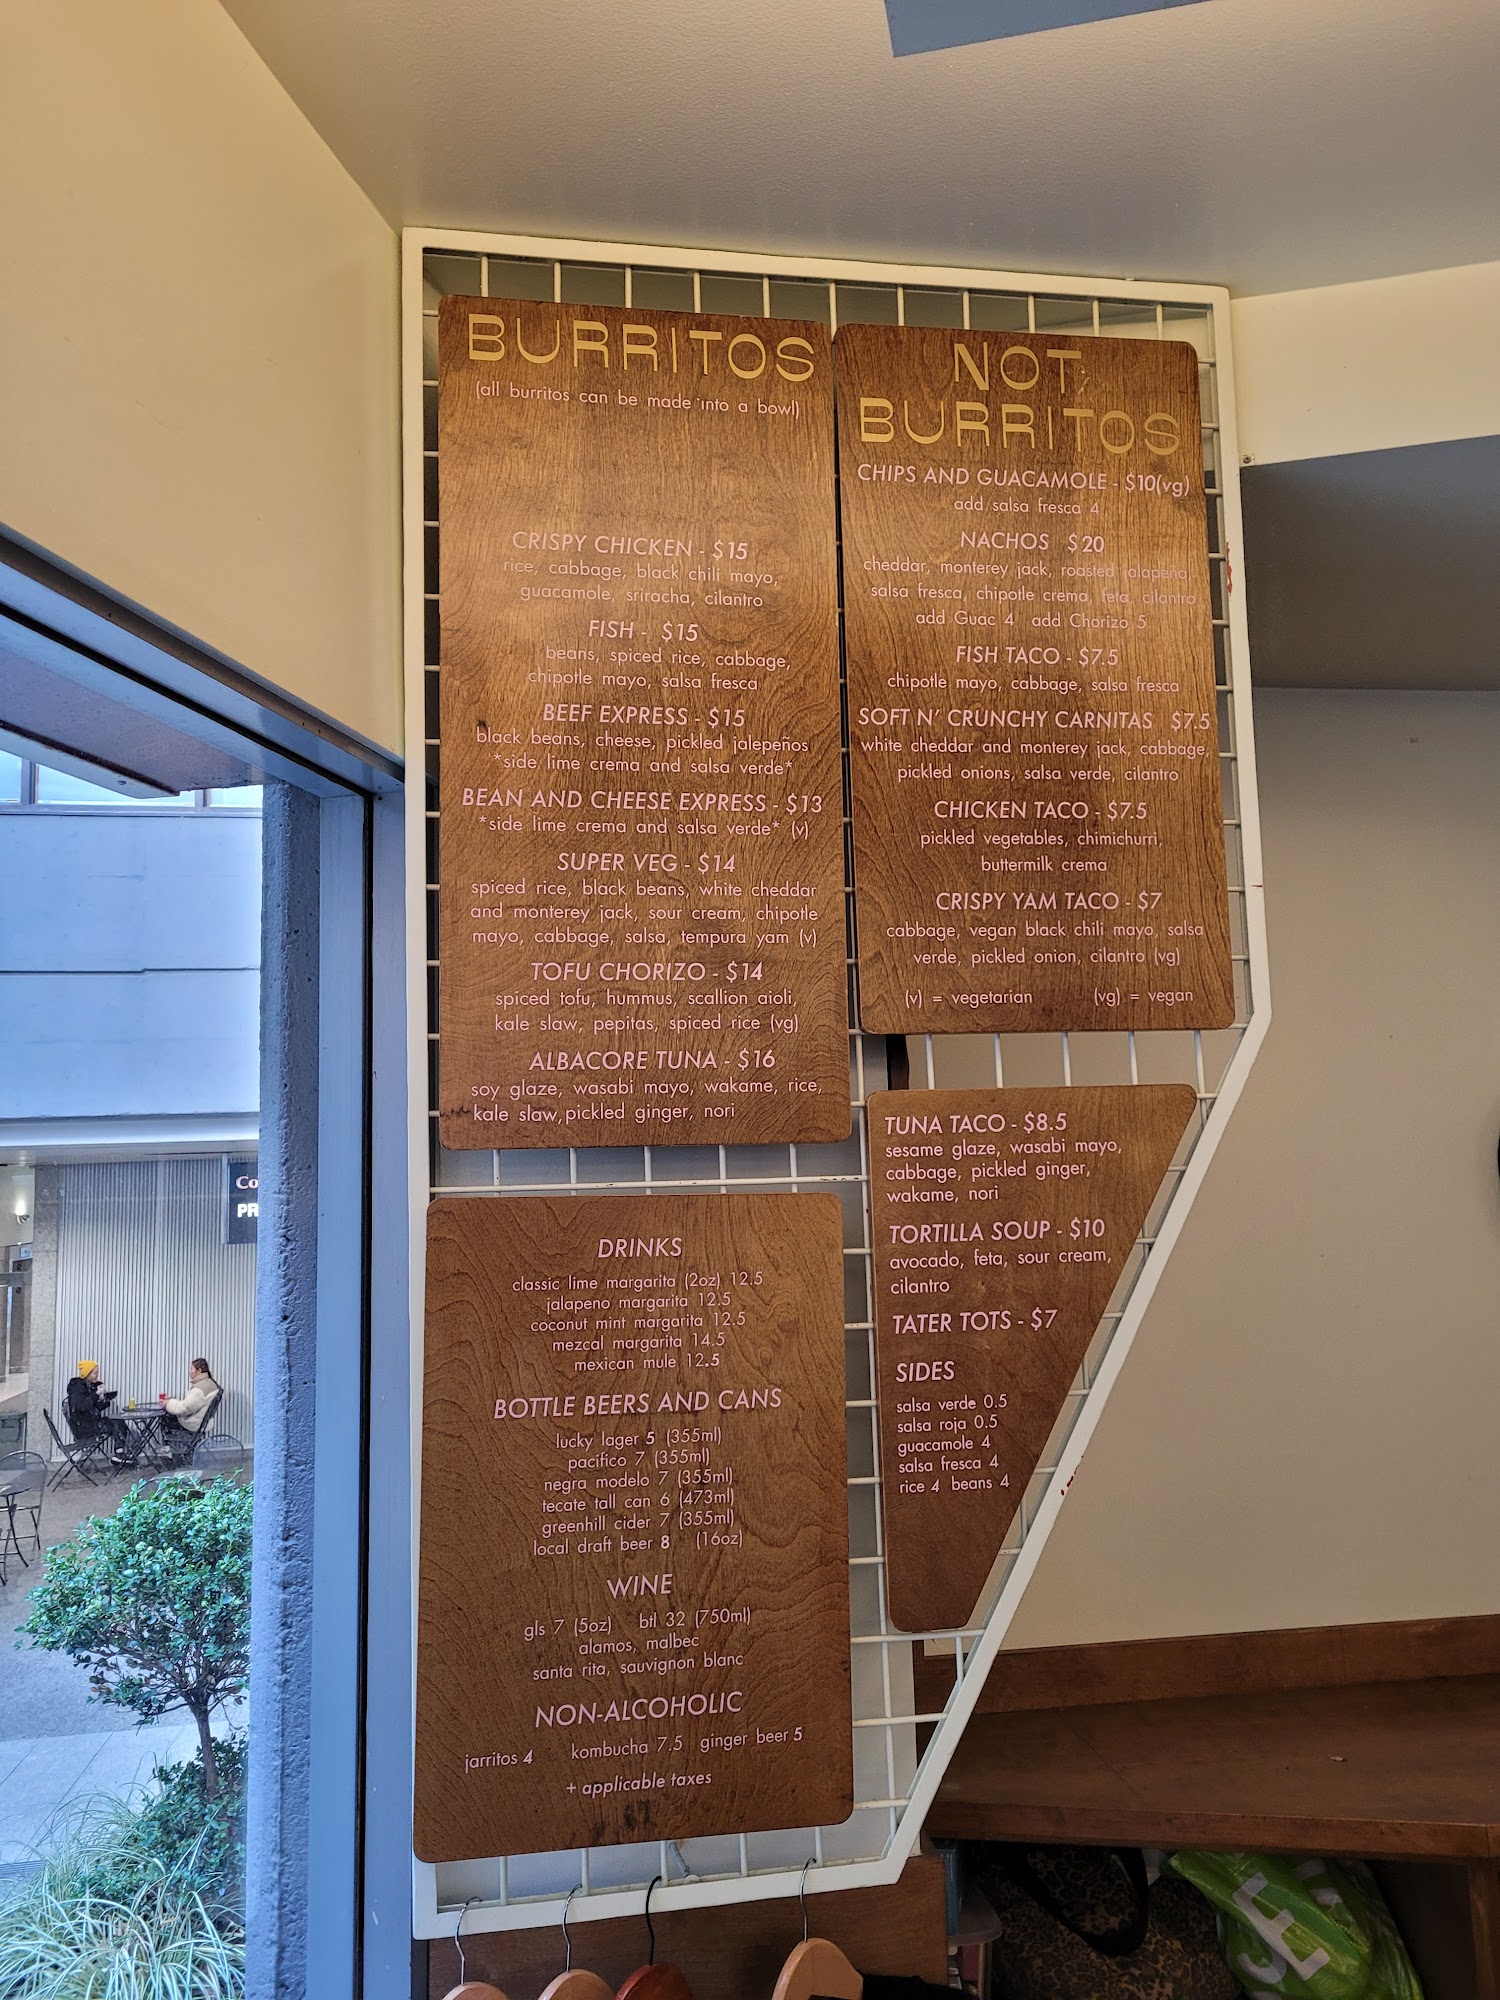 BURRITOS
(all burritos can be made into a bowl)
CRISPY CHICKEN - $15
rice, cabbage, black chili mayo,
guacamole, sriracha, cilantro
FISH - $15
beans, spiced rice, cabbage,
chipotle mayo, salsa fresca
BEEF EXPRESS - $15
black beans, cheese, pickled jalepeños
*side lime crema and salsa verde*
BEAN AND CHEESE EXPRESS - $13
*side lime crema and salsa verde* (v)
SUPER VEG - $14
spiced rice, black beans, white cheddar
and monterey jack, sour cream, chipotle
mayo, cabbage, salsa, tempura yam (v)
TOFU CHORIZO - $14
spiced tofu, hummus, scallion aioli,
kale slaw, pepitas, spiced rice (vg)
ALBACORE TUNA - $16
soy glaze, wasabi mayo, wakame, rice,
kale slaw, pickled ginger, nori
NOT
BURRITOS
CHIPS AND GUACAMOLE - $10(vg)
add salsa fresca 4
NACHOS $20
cheddar, monterey jack, roasted jalapeno,
salsa fresca, chipotle crema, feta, cilantro
add Guac 4 add Chorizo 5
FISH TACO - $7.5
chipotle mayo, cabbage, salsa fresca
SOFT N' CRUNCHY CARNITAS $7.5
white cheddar and monterey jack, cabbage,
pickled onions, salsa verde, cilantro
CHICKEN TACO - $7.5
pickled vegetables, chimichurri,
buttermilk crema
CRISPY YAM TACO - $7
cabbage, vegan black chili mayo, salsa
verde, pickled onion, cilantro (vg)
(v) = vegetarian (vg) = vegan
TUNA TACO - $8.5
sesame glaze, wasabi mayo,
cabbage, pickled ginger,
wakame, nori
TORTILLA SOUP - $10
avocado, feta, sour cream,
cilantro
TATER TOTS - $7
SIDES
salsa verde 0.5
salsa roja 0.5
guacamole 4
salsa fresca 4
rice 4 beans 4
DRINKS
classic lime margarita (2oz) 12.5
jalapeno margarita 12.5
coconut mint margarita 12.5
mezcal margarita 14.5
mexican mule 12.5
BOTTLE BEERS AND CANS
lucky lager 5 (355ml)
pacifico 7 (355ml)
negra modelo 7 (355ml)
tecate tall can 6 (473ml)
greenhill cider 7 (355ml)
local draft beer 8 (16oz)
WINE
gls 7 (5oz) btl 32 (750ml)
alamos, malbec
santa rita, sauvignon blanc
NON-ALCOHOLIC
jarritos 4 kombucha 7.5 ginger beer 5
+ applicable taxes
Co
PR